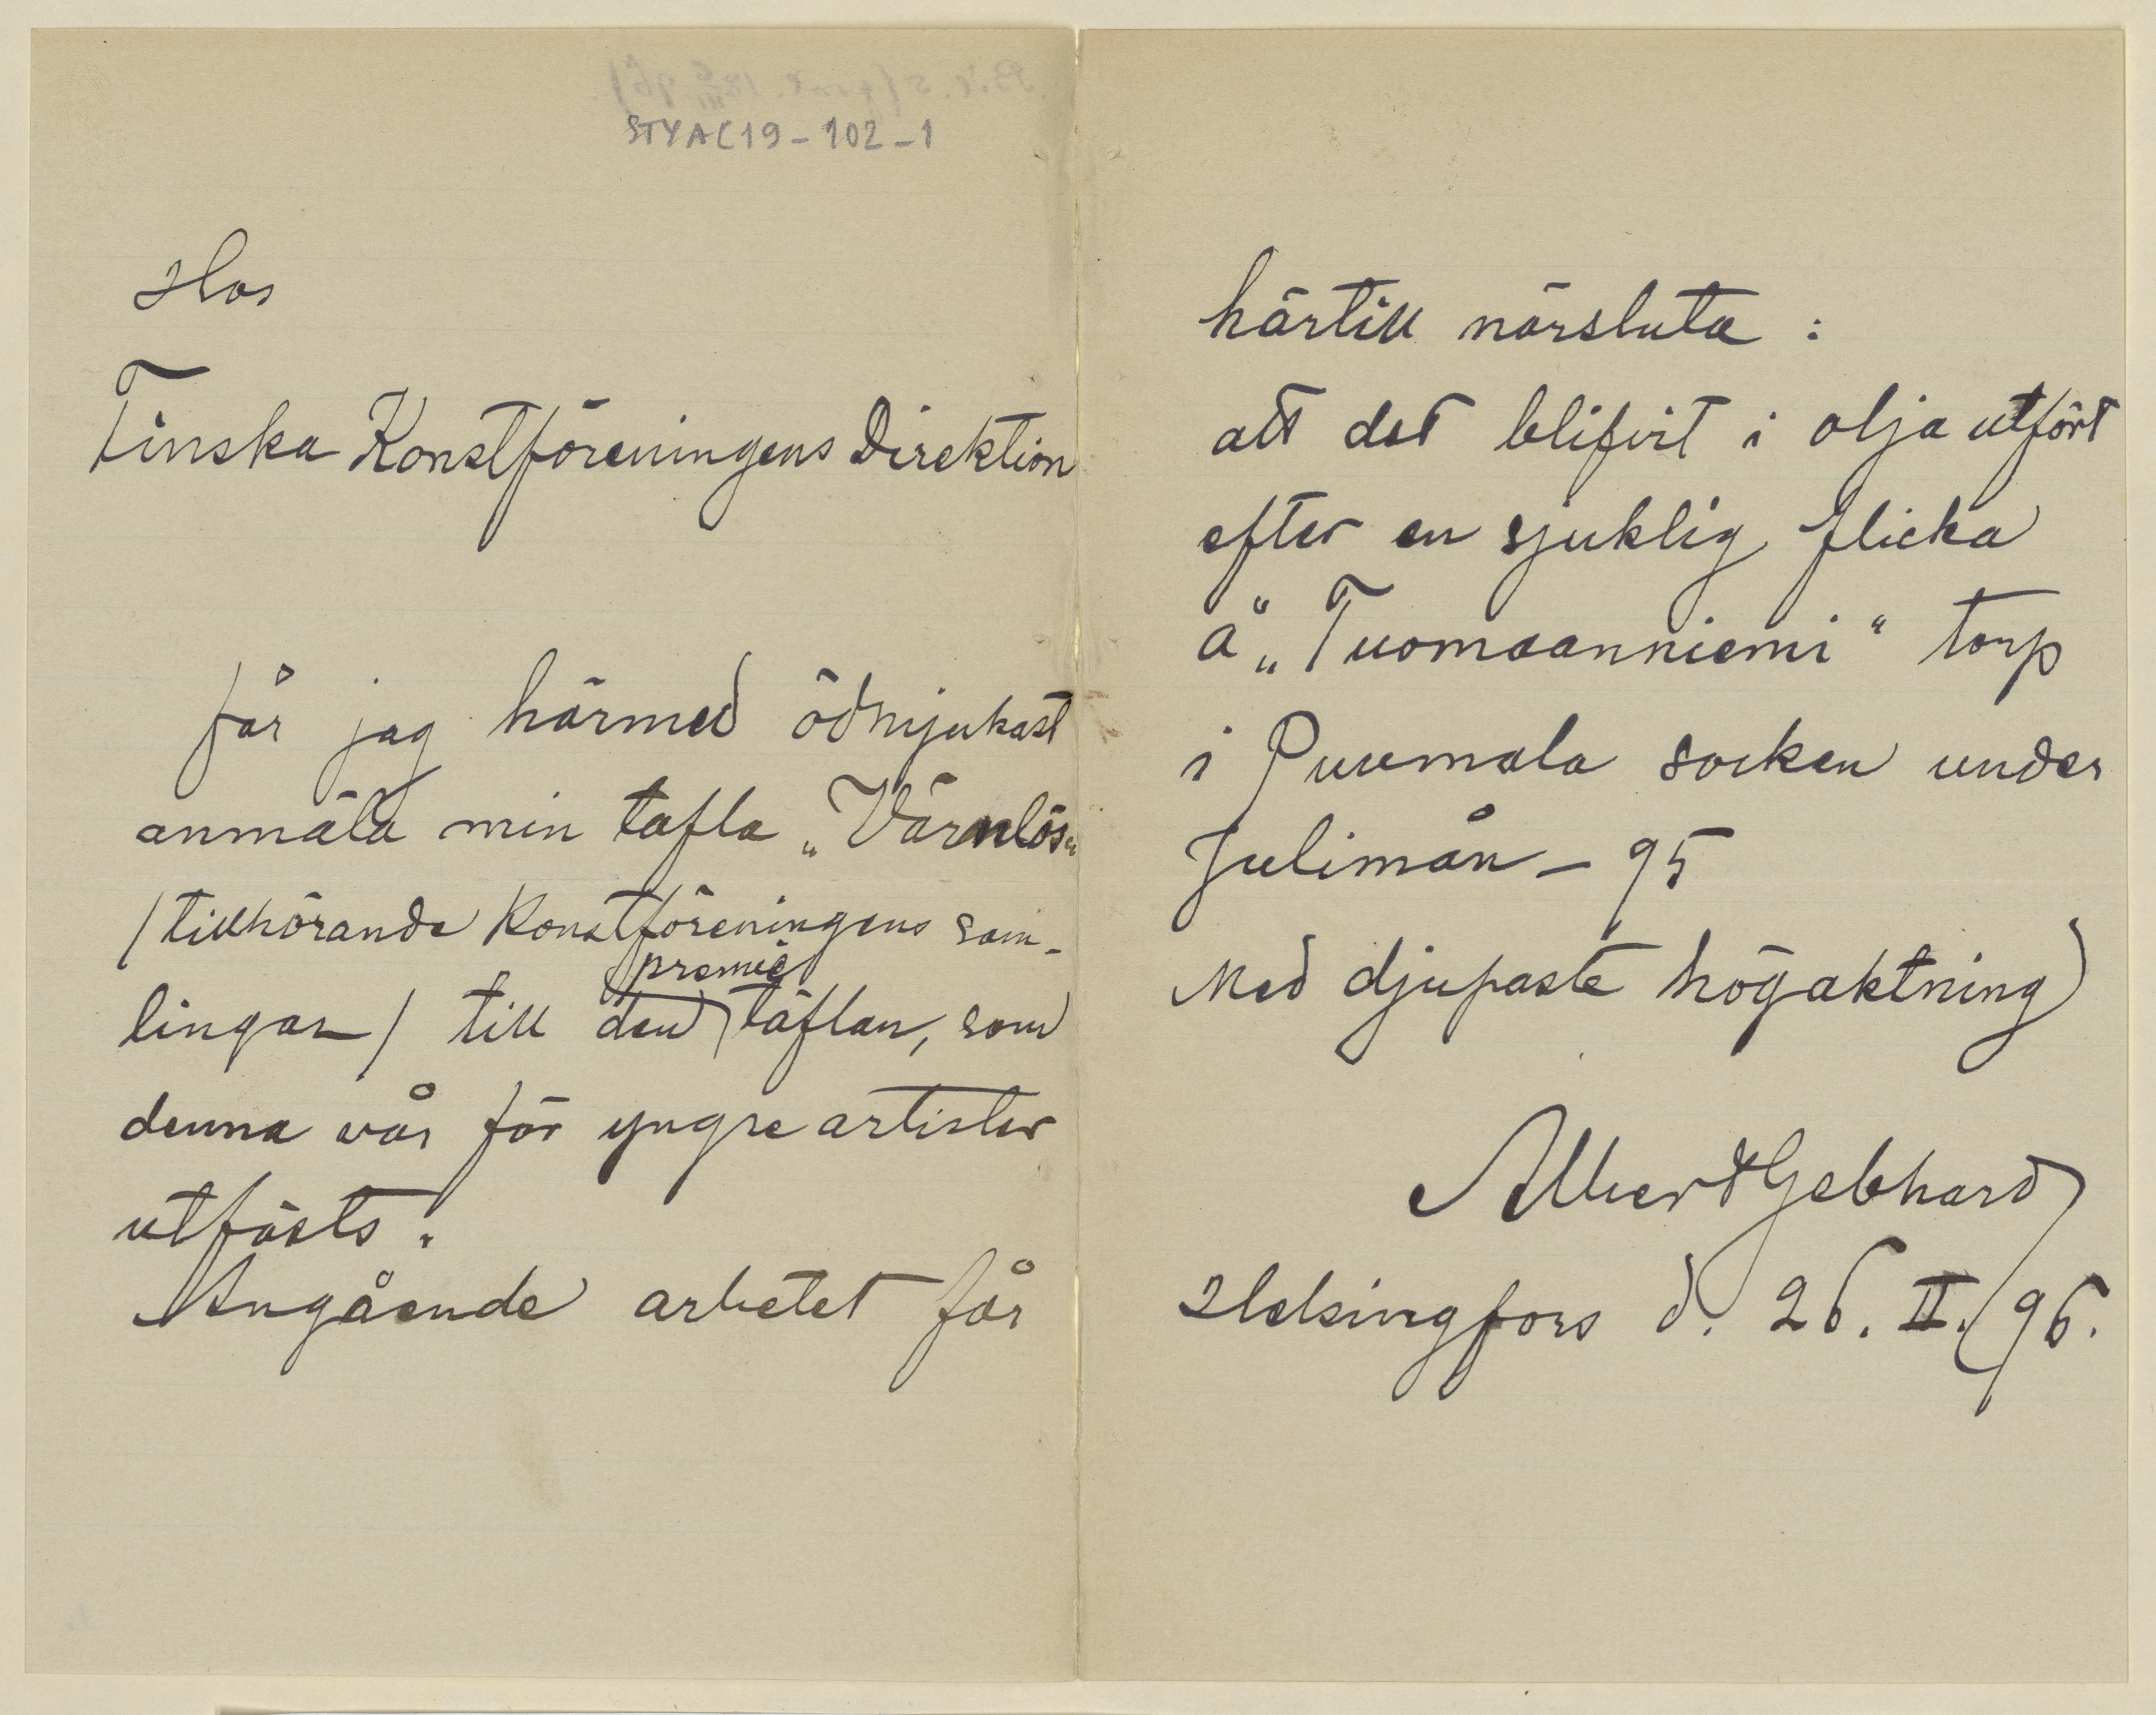 STYAC19-102-1
Hos
Finska Konstföreningens Direktion
får jag härmed ödmjukast
anmäla min tafla „Värnlös“
/tillhörande Konstföreningens sam-
premie
lingar/ till den täflan, som
denna vår för yngre artister
utfästs.
Angående arbetet får
härtill närsluta :
att det blifvit i olja utfört
efter en sjuklig flicka
å „Tuomaanniemi“ torp
i Puumala socken under
Julimån – 95
Med djupaste högaktning
Albert Gebhard
Helsingfors d. 26. II. 96.